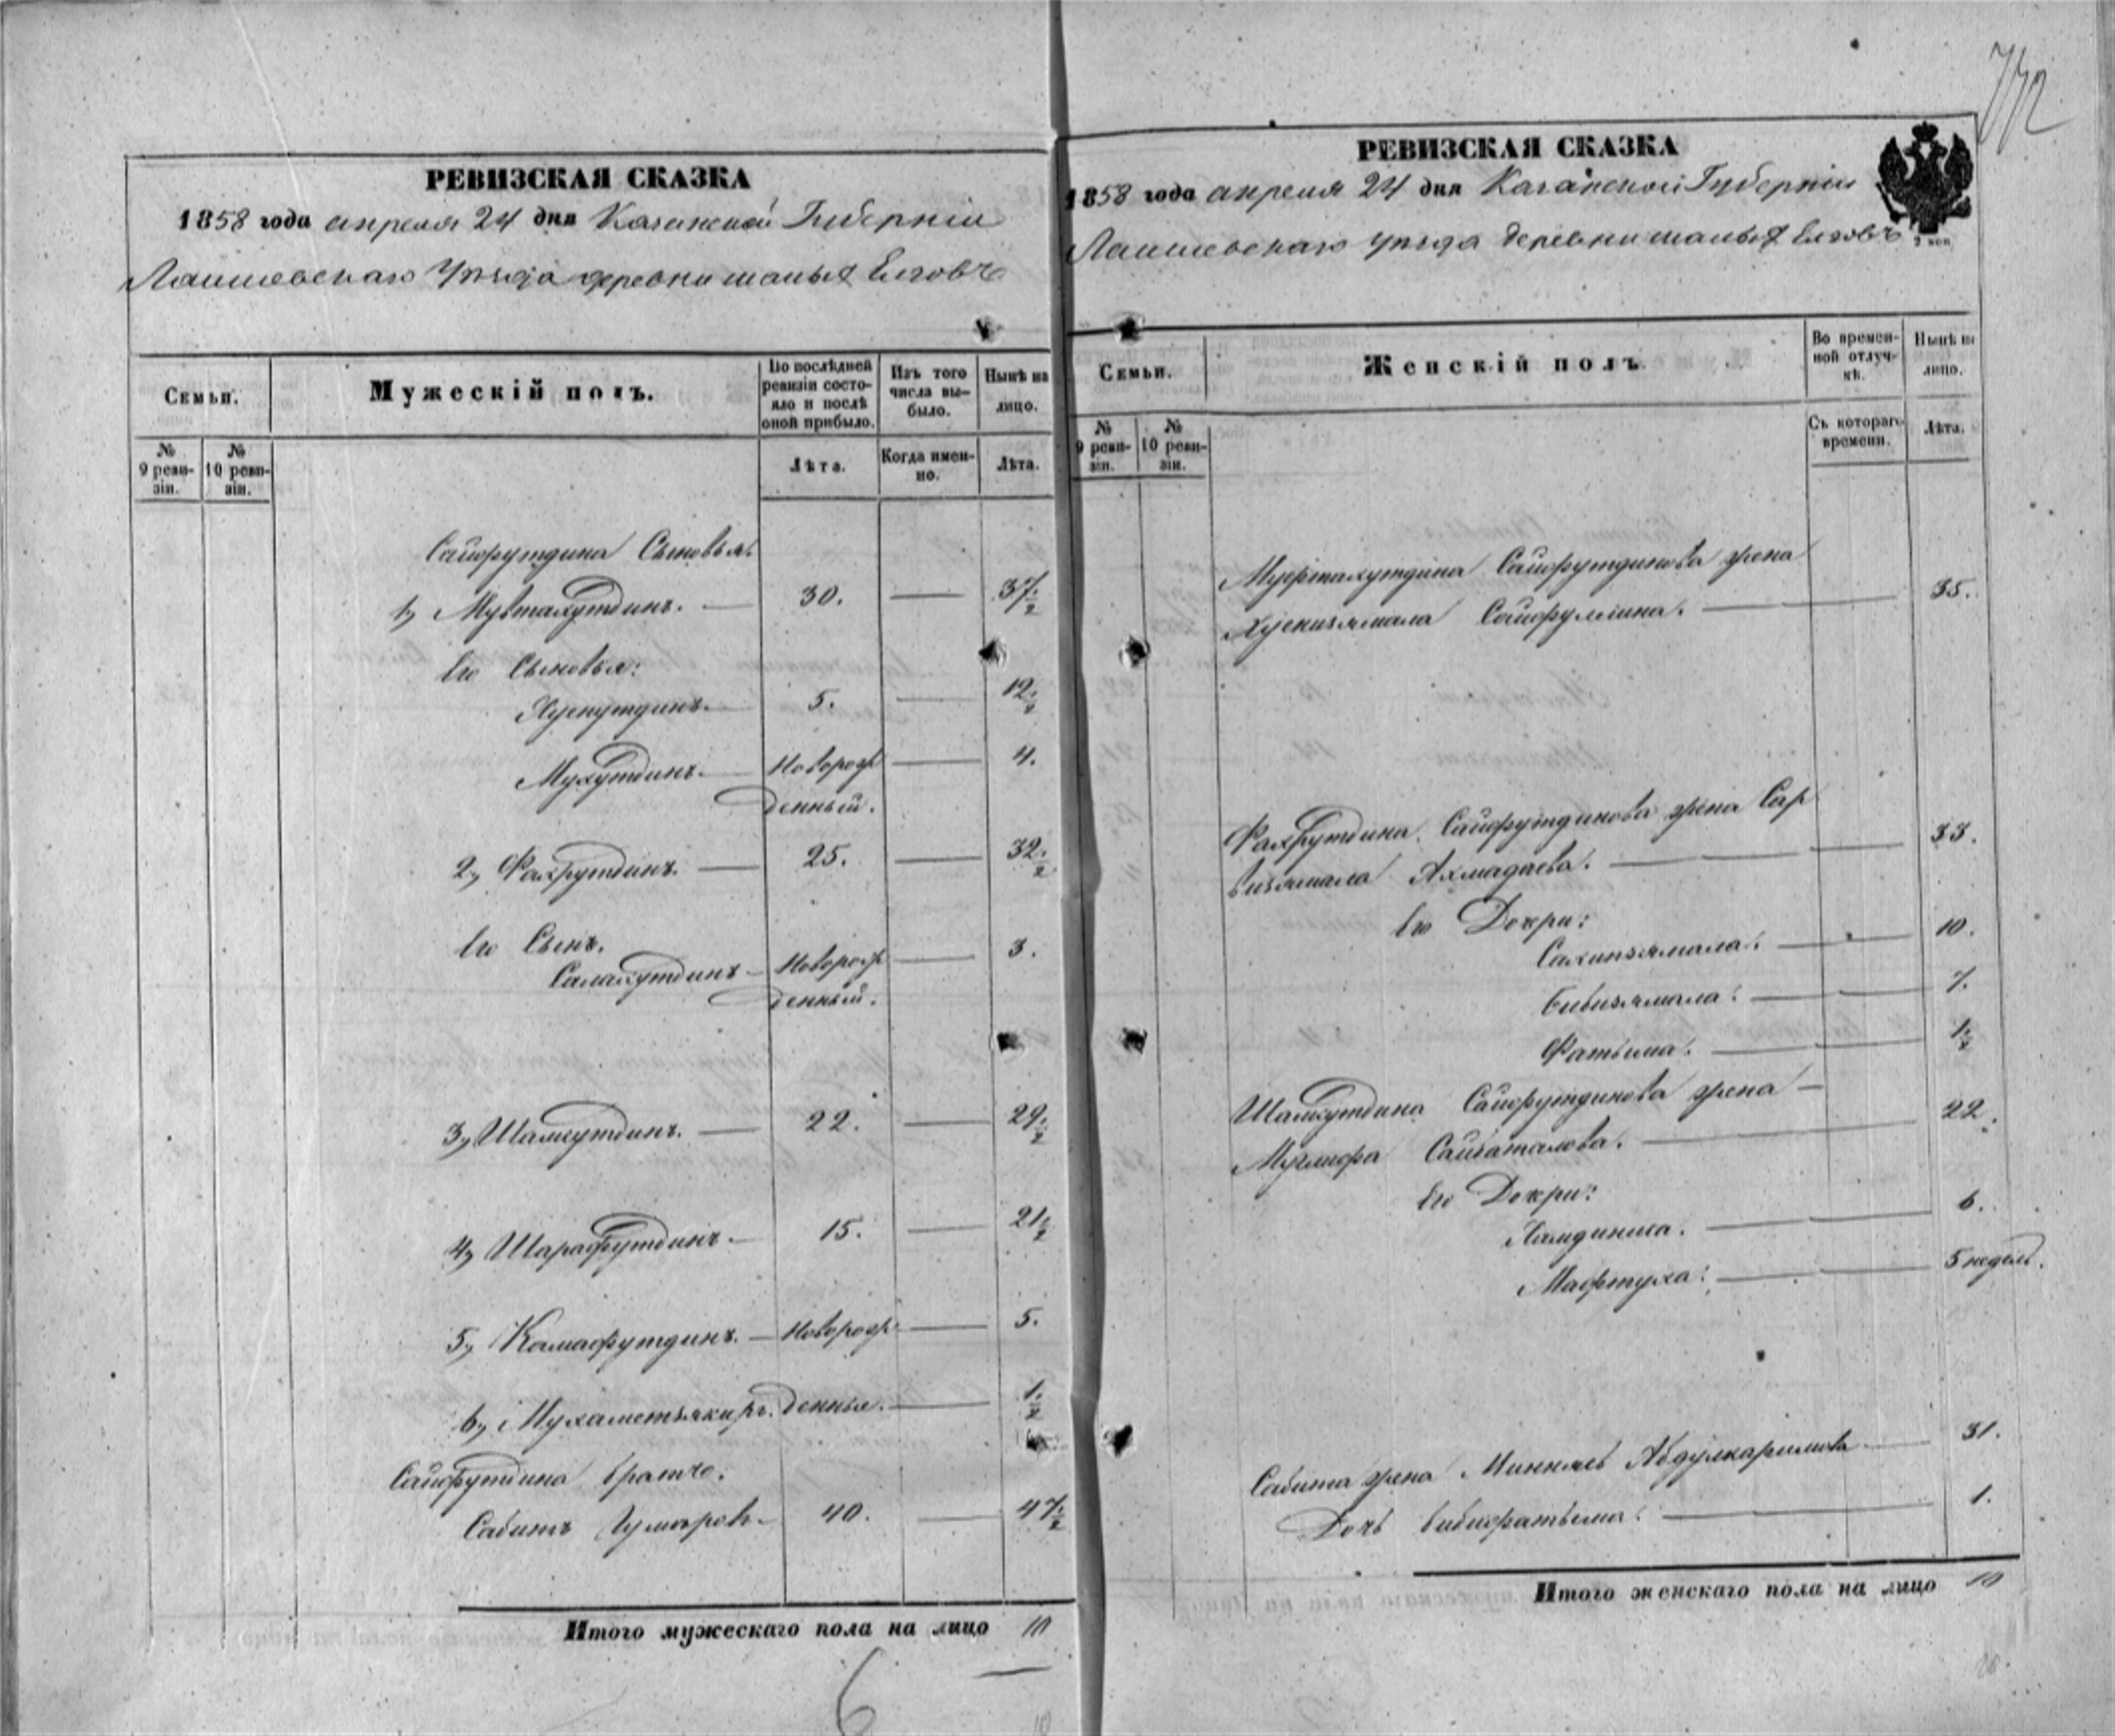 772
РЕВИЗСКАЯ СКАЗКА
1858 года апреля 24 дня Казанской Губерніи
Лаишевскаго Уѣзда деревни малыя Елговъ
Семьи.
Мужескій полъ.
По послѣдней ревизіи состояло и послѣ оной прибыло.
Изъ того числа выбыло.
Нынѣ на лицо.
№ 9 ревизіи.
№ 10 ревизіи.
Лѣта.
Когда именно.
Лѣта.
Сайфутдина Сыновья:
1, Мувтахутдинъ. — 30. — 37 1/2
Его Сыновья:
Хуснутдинъ. — 5. — 12 1/2
Мухутдинъ. — Новорож — 4.
денный.
2, Фахрутдинъ. — 25. — 32 1/2
Его Сынъ.
Салахутдинъ — Новорож — 3.
денный.
3, Шамсутдинъ. — 22. — 29 1/2
4, Шарафутдинъ. — 15. — 21 1/2
5, Камафутдинъ. — Новорож — 5.
6, Мухаметзякиръ. денные. — 1/2
Сайфутдина братъ:
Сабитъ Гумаровъ — 40. — 47 1/2
Итого мужескаго пола на лицо 10
6
РЕВИЗСКАЯ СКАЗКА
1858 года апреля 24 дня Казанской Губерніи
Лаишевскаго уѣзда деревни малыя Елговъ
Семьи.
Женскій полъ.
Во временной отлучкѣ.
Нынѣ на лицо.
№ 9 ревизіи.
№ 10 ревизіи.
Съ котораго времени.
Лѣта.
Муфтахутдина Сайфутдинова жена
Хуснизямала Сайфуллина. — 35.
Фахрутдина Сайфутдинова жена Сар
визямала Ахмадиева. — 33.
Его Дочри:
Сахипзямала. — 10.
Бибизямала. — 7.
Фатьима. — 1/2
Шамсутдина Сайфутдинова жена —
Муглифа Сайгаталова. — 22.
Его Дочри:
Хамдиниса. — 6.
Мафтуха. — 5 недель.
Сабита жена Минняев Абдулкаримова — 31.
Дочь бибифатьима. — 1.
Итого женскаго пола на лицо 10